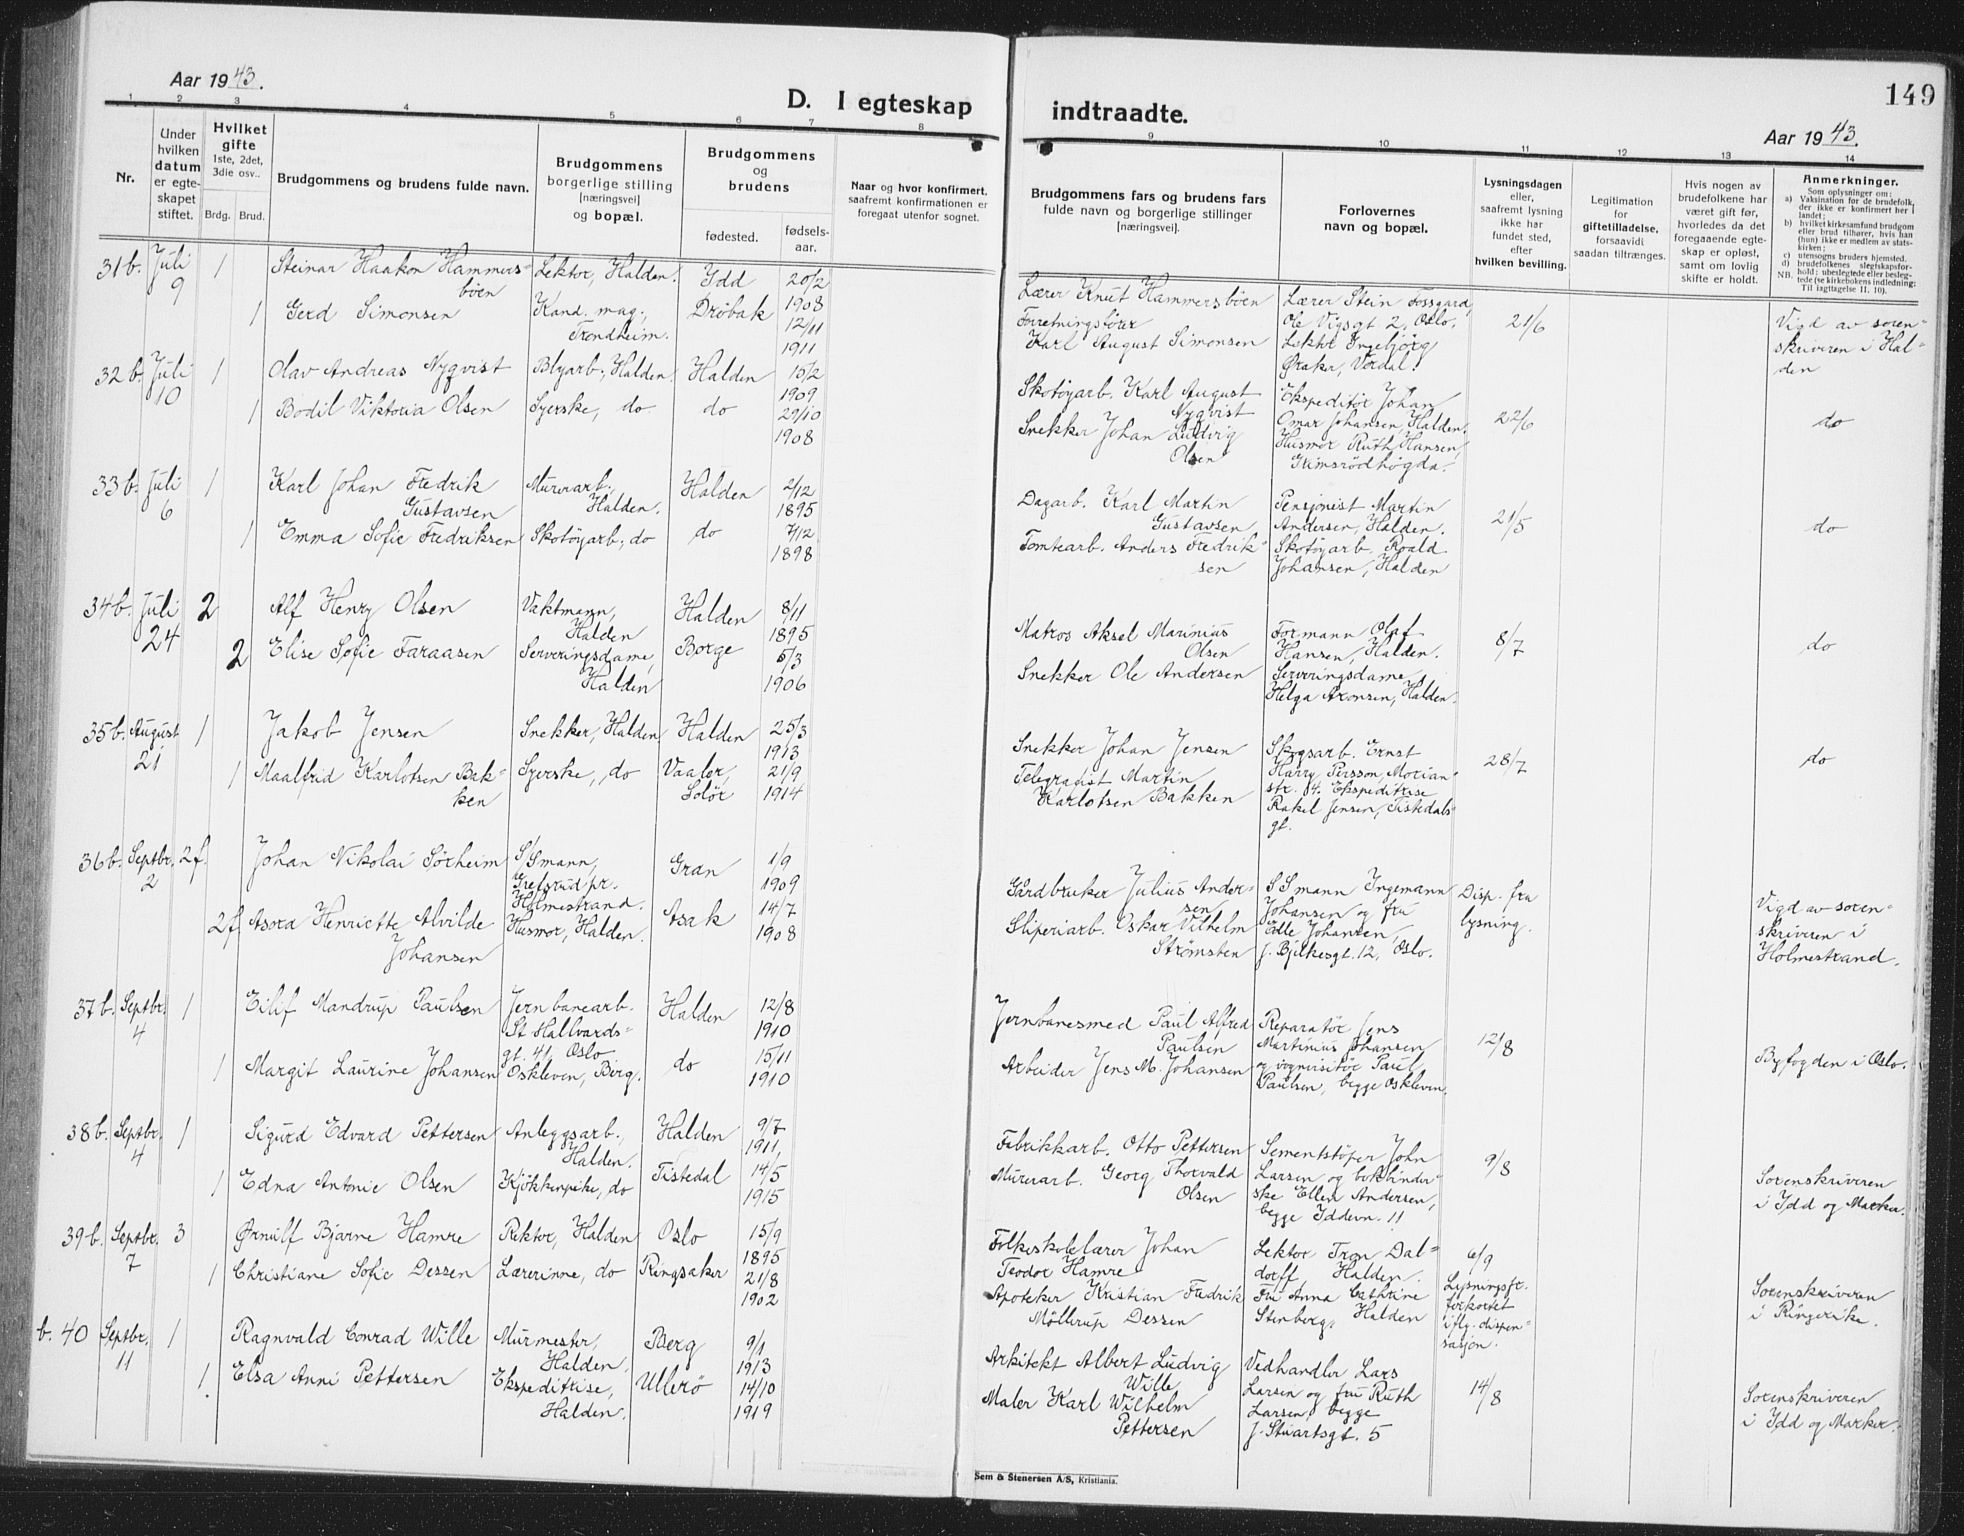 Aar 1943.
D. I egteskap
1 2 3 4 5 6 7 8
Nr.
Under hvilken datum er egteskapet stiftet.
Hvilket gifte 1ste, 2det, 3die osv..
Brdg. Brud.
Brudgommens og brudens fulde navn.
Brudgommens borgerlige stilling [næringsvei] og bopæl.
Brudgommens og brudens
fødested.
fødselsaar.
Naar og hvor konfirmert, saafremt konfirmationen er foregaat utenfor sognet.
31b. Juli 9 1 Steinar Haakon Hammersböen Lektor, Halden. Idd 20/2 1908
1 Gerd Simonsen Kand. mag., Trondheim. Dröbak 12/11 1911
32b. Juli 10 1 Olav Andreas Nyqvist Blyarb., Halden. Halden 10/2 1909
1 Bodil Viktoria Olsen Syerske, do. do 29/10 1908
33b. Juli 6 1 Karl Johan Fredrik Gustavsen Murerarb. Halden. Halden 2/12 1895
1 Emma Sofie Fredriksen Skotöyarb., do do 7/12 1898
34b. Juli 24 2 Alf Henry Olsen Vaktmann, Halden Halden 8/11 1895
2 Elise Sofie Faraasen Serveringsdame, Halden Borge 5/3 1906
35b. August 21 1 Jakob Jensen Snekker, Halden Halden 25/3 1913
1 Maalfrid Karlotsen Bakken Syerske, do Vaaler, Solör 21/9 1914
36b. Septbr. 2 2f. Johan Nikolai Sörheim S/Smann, Grefsrud pr. Holmestrand. Gran 1/9 1909
2f Asora Henriette Alvilde Johansen Husmor, Halden. Asak 14/7 1908
37b. Septbr. 4 1 Eilif Mandrup Paulsen Jernbanearb. St Hallvardsgt. 41, Oslo Halden 12/8 1910
1 Margit Laurine Johansen Oskleven, Berg. do 15/11 1910
38b. Septbr. 4 1 Sigurd Edvard Pettersen Anleggsarb., Halden. Halden 9/7 1911,
1 Edna Antonie Olsen Kjökkenpike, do Tistedal 14/5 1915
39b. Septbr. 7 3 Ørnulf Bjarne Hamre Rektor, Halden Oslo 15/9 1895
1 Christiane Sofie Dessen Lærerinne, do Ringsaker 21/8 1902
b. 40 Septbr. 11 1 Ragnvald Conrad Wille Murmester, Halden. Berg 9/1 1913
1. Elsa Anni Pettersen Ekspeditrise, Halden. Ullerö 14/10 1919
149
indtraadte.
Aar 1943.
9 10 11 12 13 14
Brudgommens fars og brudens fars fulde navn og borgerlige stillinger [næringsvei].
Forlovernes navn og bopæl.
Lysningsdagen eller, saafremt lysning ikke har fundet sted, efter hvilken bevilling.
Legitimation for giftetilladelse, forsaavidt saadan tiltrænges.
Hvis nogen av brudefolkene har været gift før, hvorledes da det foregaaende egteskap er opløst, samt om lovlig skifte er holdt.
Anmerkninger.
Som oplysninger om:
a) Vaksination for de brudefolk, der ikke er konfirmert her i landet;
b) hvilket kirkesamfund brudgom eller brud tilhører, hvis han (hun) ikke er medlem av statskirken;
c) utensogns bruders hjemsted.
d) brudefolkenes slegtskapsforhold: ubeslegtede eller beslegtede (se kirkebokens indledning: NB. Til iagttagelse II, 10).
Lærer Knut Hammersböen Lærer Stein Fossgard, Ole Vigsgt 2, Oslo. 21/6 Vigd av sorenskriveren i Halden
Forretningsförer Karl August Simonsen Lektor Ingebjörg Øraker, Verdal.
Skotöyarb. Karl August Nyqvist Ekspeditör Johan Omar Johansen, Halden. 22/6 do
Snekker Johan Ludvig Olsen Husmor Ruth Hansen, Grimsrödhögda.
Dagarb. Karl Martin Gustavsen Pensjonist Martin Andersen, Halden. 21/5 do
Tomtearb. Anders Fredriksen Skotöyarb. Roald Johansen, Halden
Matros Aksel Marinius Olsen Formann Olaf Hansen, Halden. 8/7 do
Snekker Ole Andersen Serveringsdame Helga Aronsen, Halden.
Snekker Johan Jensen Skogsarb. Ernst Harry Persson, Morianstr. 4. 28/7 do
Telegrafist Martin Karlotsen Bakken Ekspeditrise Rakel Jensen, Tistedalsgt.
Gårdbruker Julius Andersen SSmann Ingemann Johansen og fru Disp. fra lysning. Vigd av sorenskriveren i Holmestrand.
Sliperiarb. Oskar Vilhelm Strömsten Edle Johansen, J. Bjelkesgt. 12, Oslo.
Jernbanesmed Paul Alfred Paulsen Reparatör Jens Martinius Johansen 12/8 Byfogden i Oslo.
Arbeider Jens M. Johansen og vognvisitör Paul Paulsen, begge Oskleven.
Fabrikkarb. Otto Pettersen Sementstöper John Larsen og bokbinder- 9/8 Sorenskriveren i Idd og Marker.
Murerarb. Georg Thorvald Olsen ske Ellen Andersen, begge Iddevn. 11
Folkeskolelærer Johan Teodor Hamre Lektor Tron Daldorff, Halden. 6/9 Lysningsfr. forkortet iflg. dispensasjon. Sorenskriveren i Ringerike.
Apoteker Kristian Fredrik Möllerup Dessen Fru Anna Cathrine Stenberg, Halden
Arkitekt Albert Ludvig Wille Vedhandler Lars Larsen og fru Ruth 14/8 Sorenskriveren i Idd og Marker.
Maler Karl Wilhelm Pettersen Larsen, begge J. Stuartsgt. 5
Sem & Stenersen A/S, Kristiania.